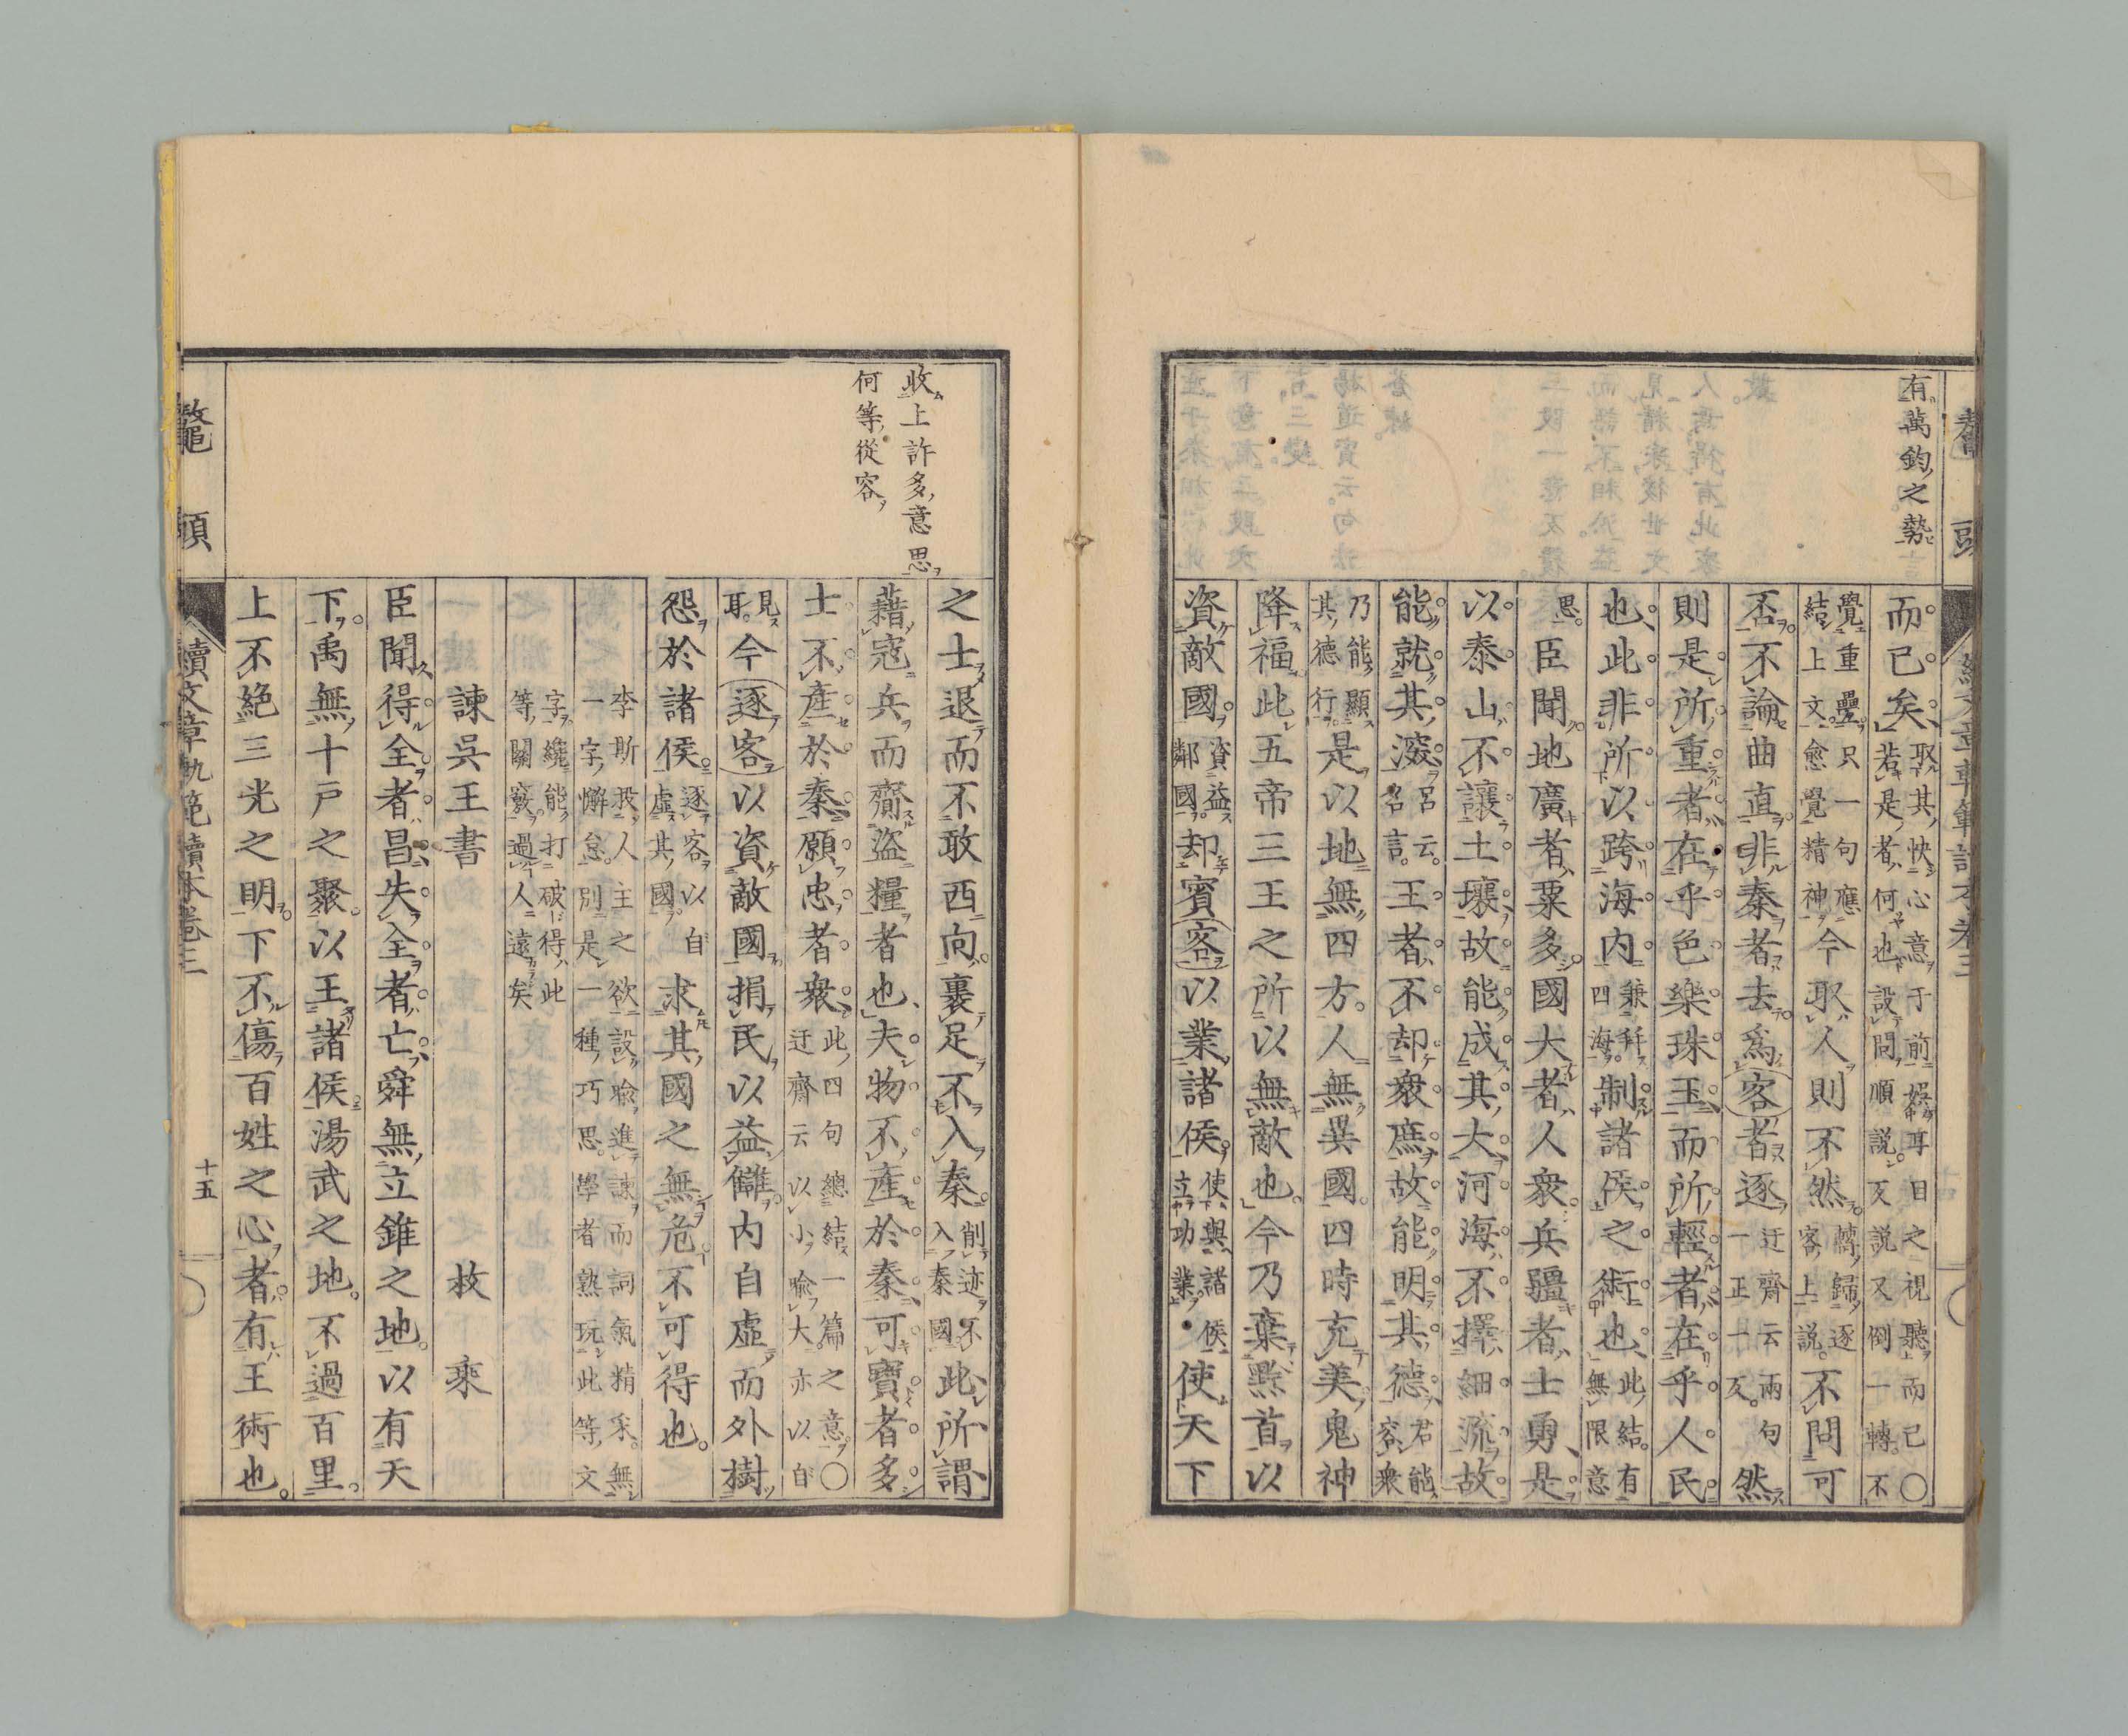 有萬鈞之勢
而已矣取其快心意于前娛耳目之視聽而已〇若是者何也設問順説反説又倒一轉不
覺重疊只一句應結上文愈覺精神今取人則不然轉歸逐客上説不問可
否不論曲直非秦者去爲客者逐迂齋云兩句一正一反然
則是所重者在乎色樂珠玉而所輕者在乎人民
也此非所以跨海内兼四海制諸侯之術也此結有無限意
思臣聞地廣者粟多國大者人衆兵彊者士勇是
以泰山不讓土壤故能成其大河海不擇細流故
能就其深呂云名言王者不却衆庶故能明其德君能容衆
乃能顯其德行是以地無四方人無異國四時充美鬼神
降福此五帝三王之所以無敵也今乃棄黔首以
資敵國資益鄰國却賓客以業諸侯使與諸侯立功業使天下
收上許多意思
何等從容
之士退而不敢西向裹足不入秦削迹不入秦國此所謂
藉寇兵而齎盜糧者也夫物不產於秦可寶者多
士不產於秦願忠者衆此四句總結一篇之意〇迂齋云以小喩大亦以自
見耳今逐客以資敵國捐民以益讎内自虛而外樹
怨於諸侯逐客以自虛其國求其國之無危不可得也
李斯投人主之欲設喩進諫而詞氣精采無一字懈怠別是一種巧思學者熟玩此等文
字纔能打破得此等關竅過人遠矣
諫吳王書　枚乘
臣聞得全者昌失全者亡舜無立錐之地以有天
下禹無十戸之聚以王諸侯湯武之地不過百里
上不絕三光之明下不傷百姓之心者有王術也
鼇頭
續文章軌範讀本卷三
十五